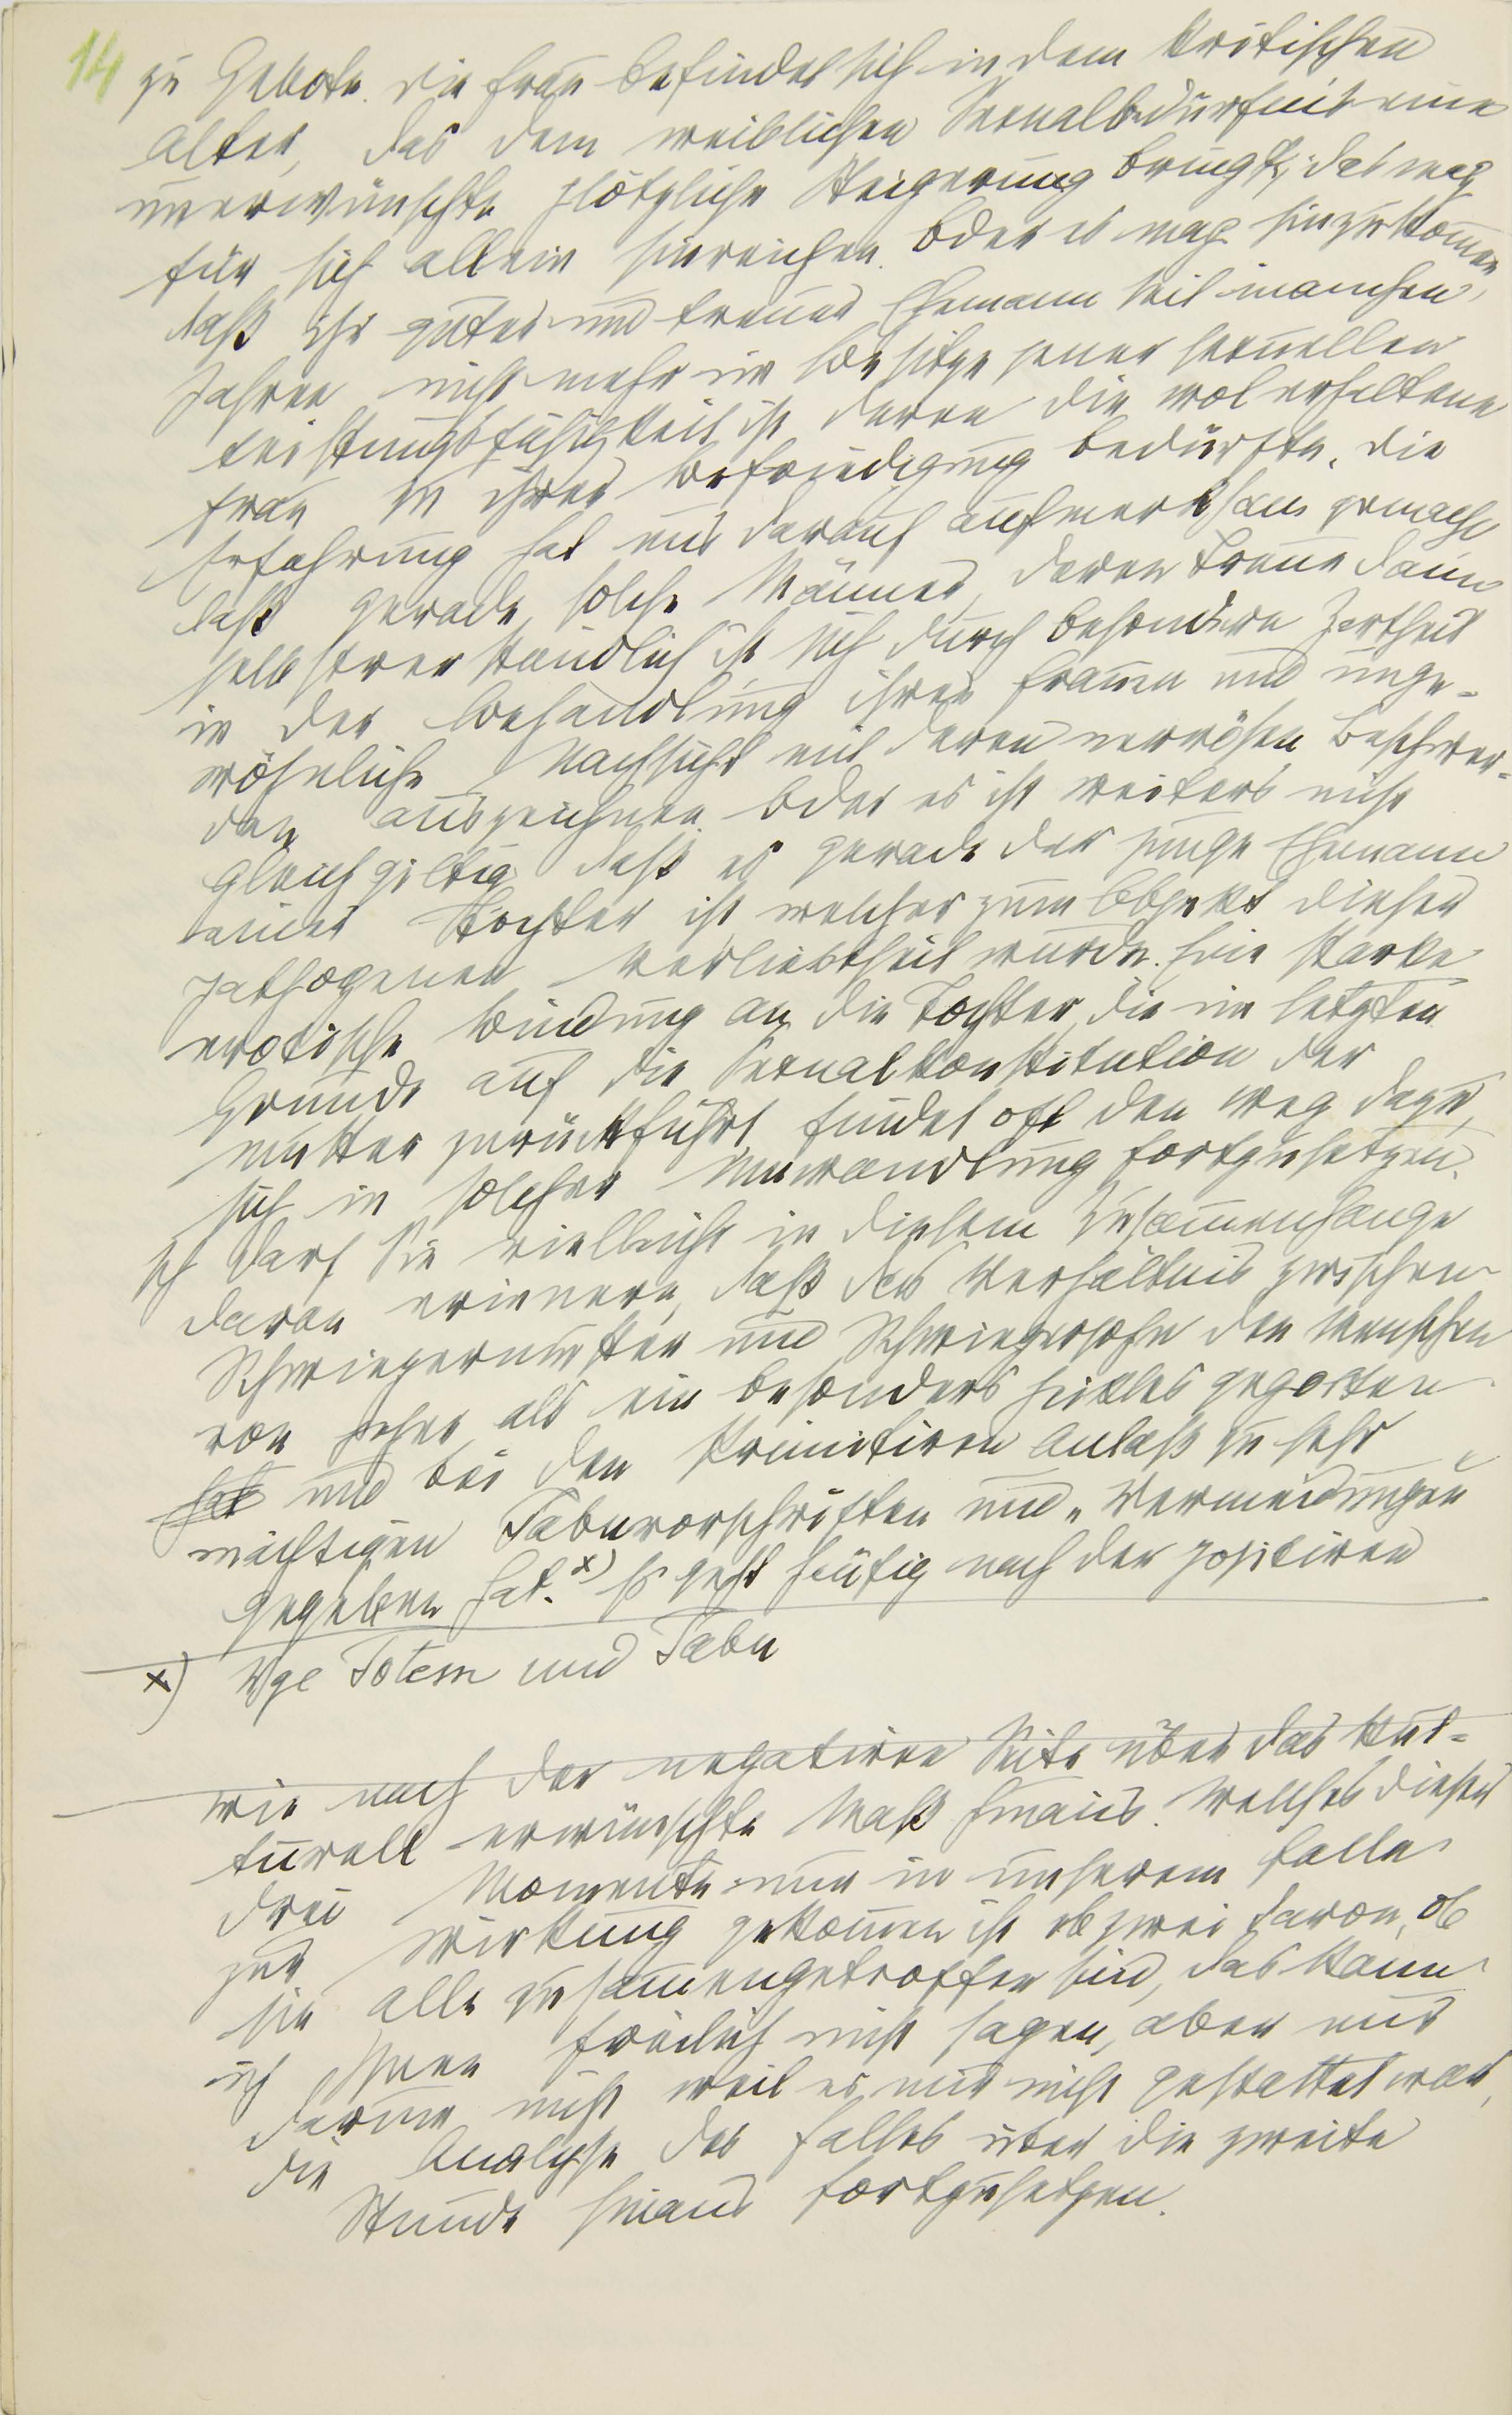 14
zu Gebote. Die Frau befindet sich in dem kritischen
Alter, das dem weiblichen Sexualbedürfnis eine
unerwünschte plötzliche Steigerung bringt; das mag
für sich allein hinreichen. Oder es mag hinzukom̅en,
daß ihr guter und treuer Ehemann seit manchen
Jahren nicht mehr im Besitze jener sexuellen
Leistungsfähigkeit ist deren die wolerhaltene
Frau zu ihrer Befriedigung bedürfte. Die
Erfahrung hat uns darauf aufmerksam gemacht
daß gerade solche Männer, deren Treue dann
selbstverständlich ist sich durch besondere Zartheit
in der Behandlung ihrer Frauen und unge-
wöhnliche Nachsicht mit deren nervösen Beschwer-
den auszeichnen. Oder es ist weiters nicht
gleichgiltig daß es gerade der junge Ehemann
einer Tochter ist, welcher zum Objekt dieser
pathogenen Verliebtheit wurde. Eine starke
erotische Bindung an die Tochter, die im letzten
Grunde auf die Sexualkonstitution der
Mutter zurückführt findet oft den Weg dazu,
sich in solcher Umwandlung fortzusetzen.
Ich darf Sie vielleicht in diesem Zusam̅enhange
daran erinnern, daß das Verhältnis zwischen
Schwiegermutter und Schwiegersohn den Menschen
von jeher als ein besonders heikles gegolten
hat und bei den Primitiven Anlaß zu sehr
mächtigen Tabuvorschriften und „Vermeidungen
gegeben hat. x) Es geht häufig nach der positiven
x) Vgl Totem und Tabu
wie nach der negativen Seite über das kul-
turell erwünschte Maß hinaus. Welches dieser
drei Momente nun in unserem Falle
zur Wirkung gekom̅en ist ob zwei davon, ob
sie alle zusam̅engetroffen sind, das kann
ich Ihnen freilich nicht sagen, aber nur
darum nicht weil es mir nicht gestattet war,
die Analyse des Falles über die zweite
Stunde hinaus fortzusetzen.